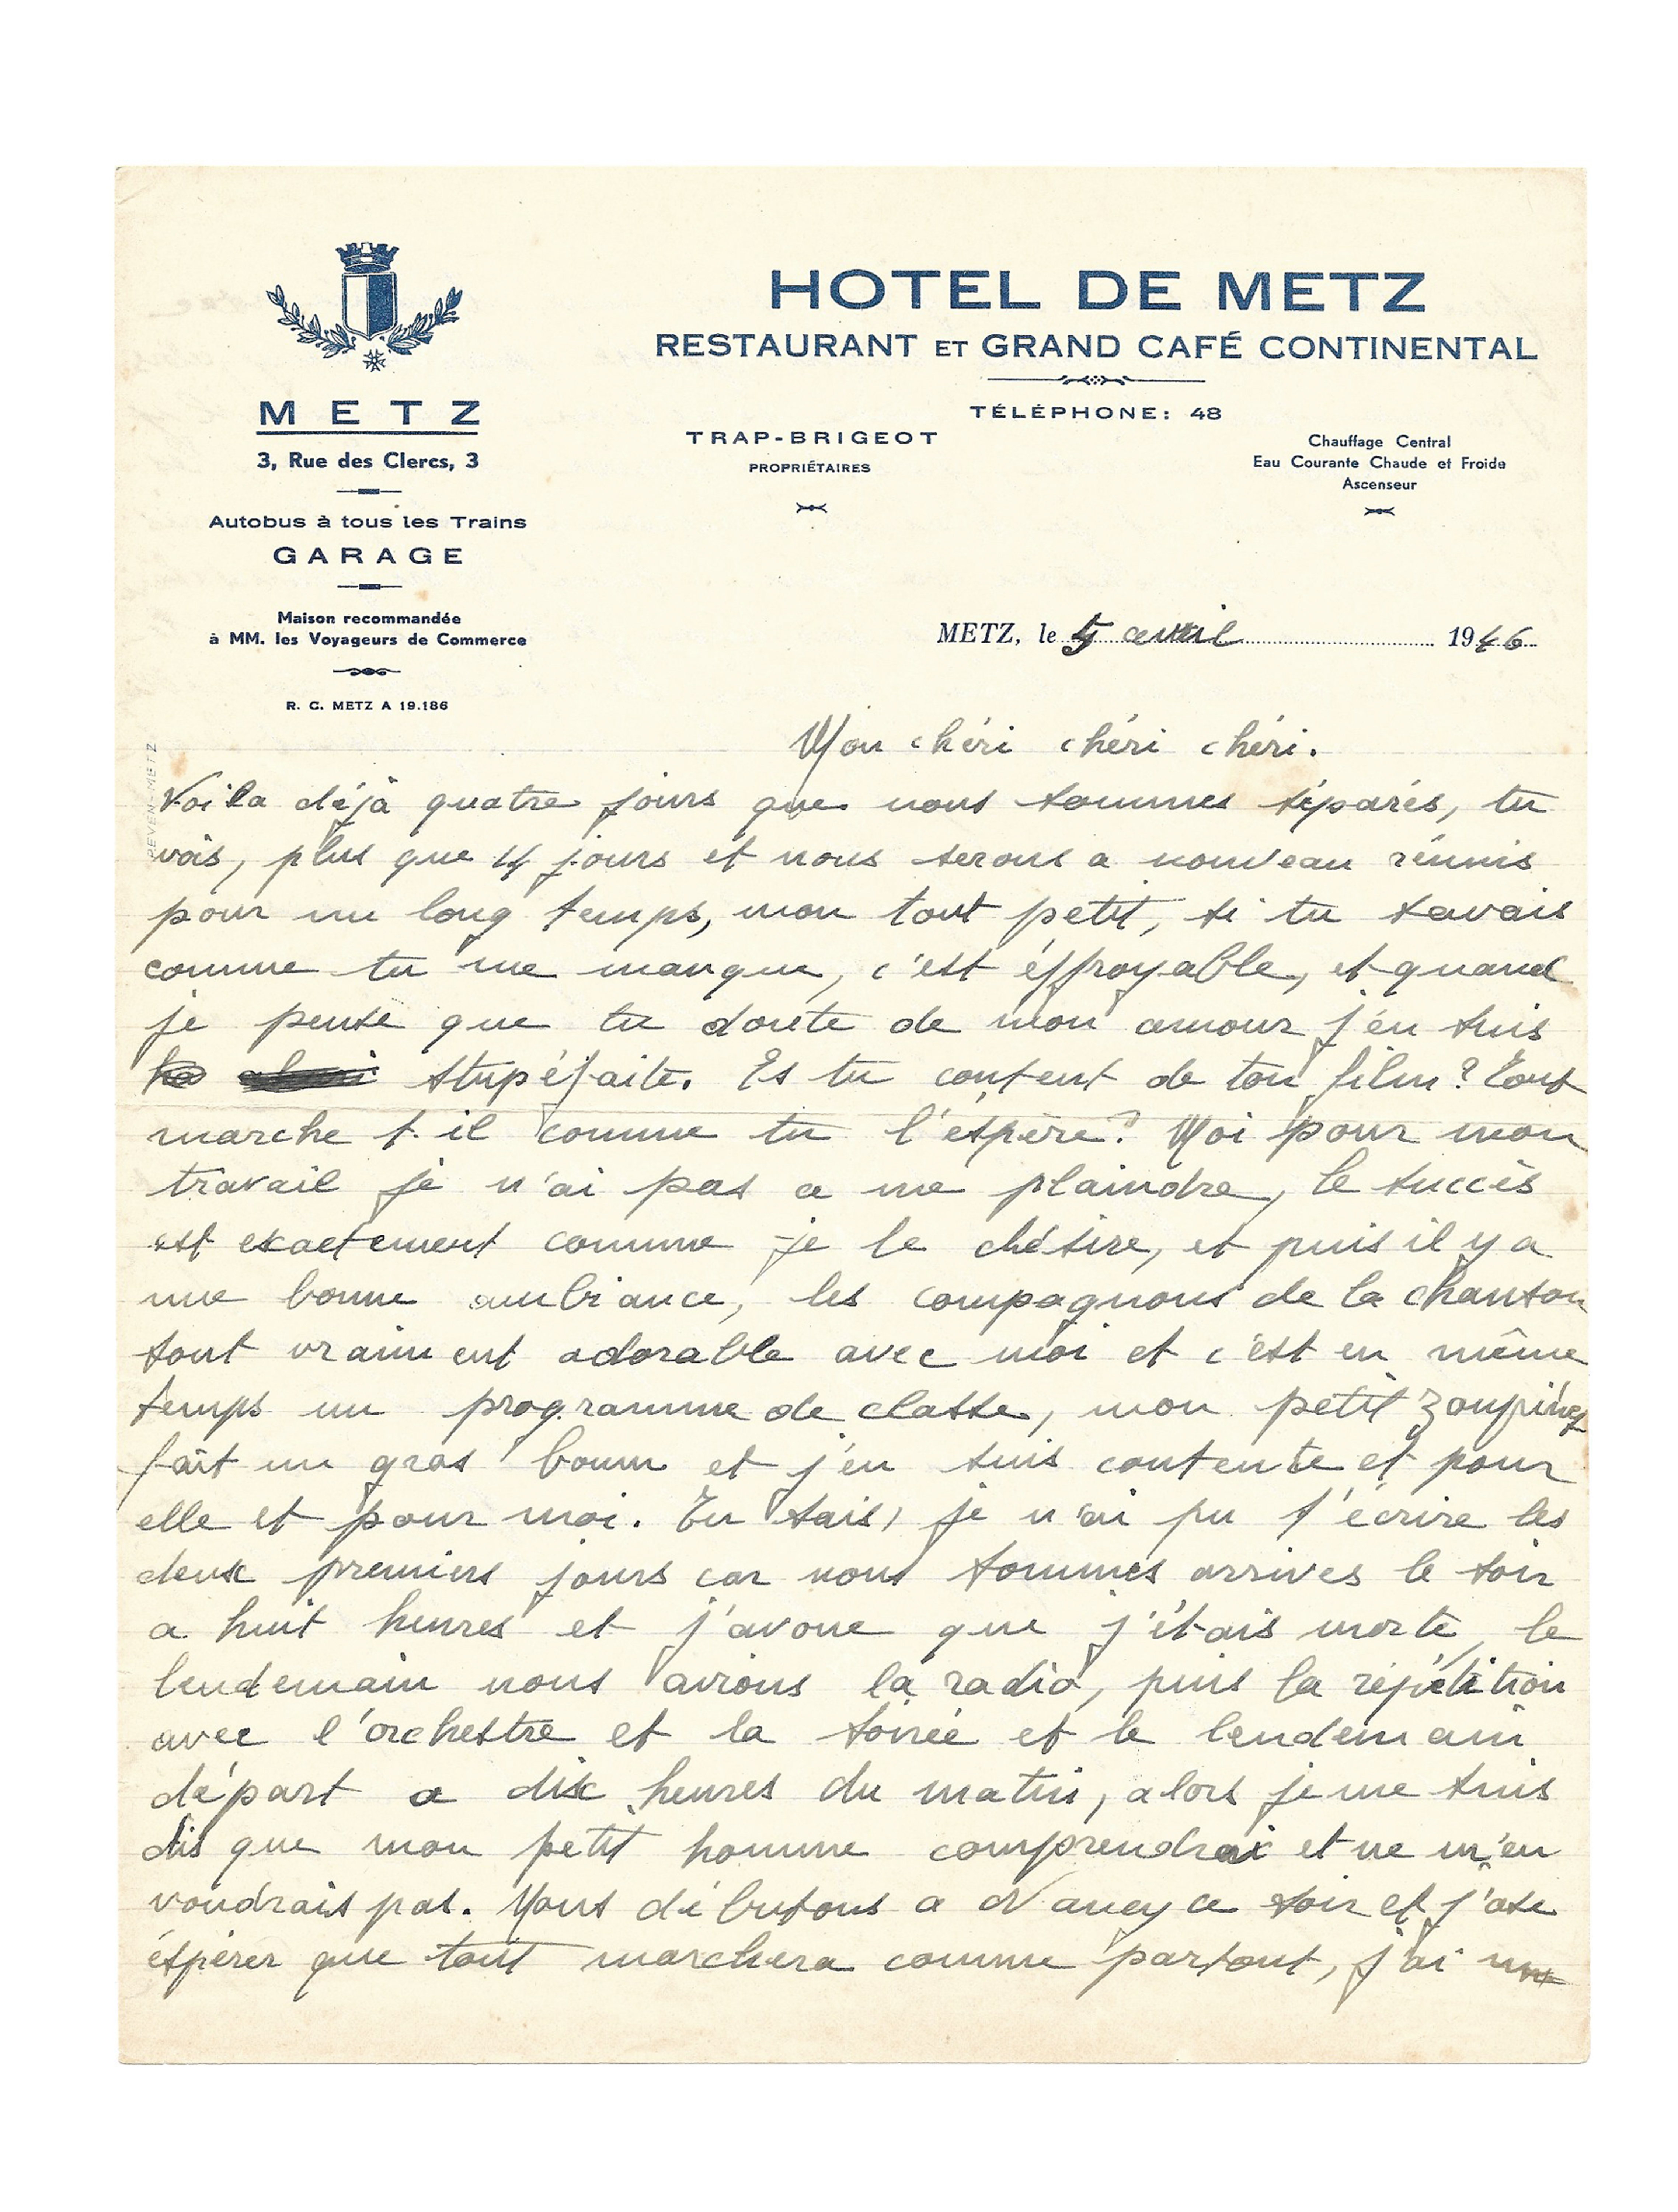 HOTEL DE METZ
RESTAURANT ET GRAND CAFÉ CONTINENTAL
TÉLÉPHONE: 48
TRAP-BRIGEOT
PROPRIÉTAIRES
Chauffage Central
Eau Courante Chaude et Froide
Ascenseur
METZ
3, Rue des Clercs, 3
Autobus à tous les Trains
GARAGE
Maison recommandée
à MM. les Voyageurs de Commerce
R. C. METZ A 19.186
METZ, le 5 avril 1946
Mon chéri chéri chéri.
Voila déjà quatre jours que nous sommes séparés, tu
vois, plus que 4 jours et nous serons a nouveau réunis
pour un long temps, mon tout petit, si tu savais
comme tu me manque, c'est éffroyable, et quand
je pense que tu doute de mon amour j'en suis
stupéfaite. Es tu content de ton film? Tout
marche t-il comme tu l'éspère? Moi pour mon
travail je n'ai pas a me plaindre, le succès
est exactement comme je le désire, et puis il y a
une bonne ambiance, les compagnons de la chanson
sont vraiment adorable avec moi et c'est en même
temps un programme de classe, mon petit
fait un gros boum et j'en suis contente et pour
elle et pour moi. Tu sais, je n'ai pu t'écrire les
deux premiers jours car nous sommes arrives le soir
a huit heures et j'avoue que j'étais morte, le
lendemain nous avions la radio, puis la répétition
avec l'orchestre et la soirée et le lendemain
départ a dix heures du matin, alors je me suis
dis que mon petit homme comprendrai et ne m'en
voudrais pas. Nous débutons a Nancy ce soir et j'ose
éspérer que tout marchera comme partout, j'ai